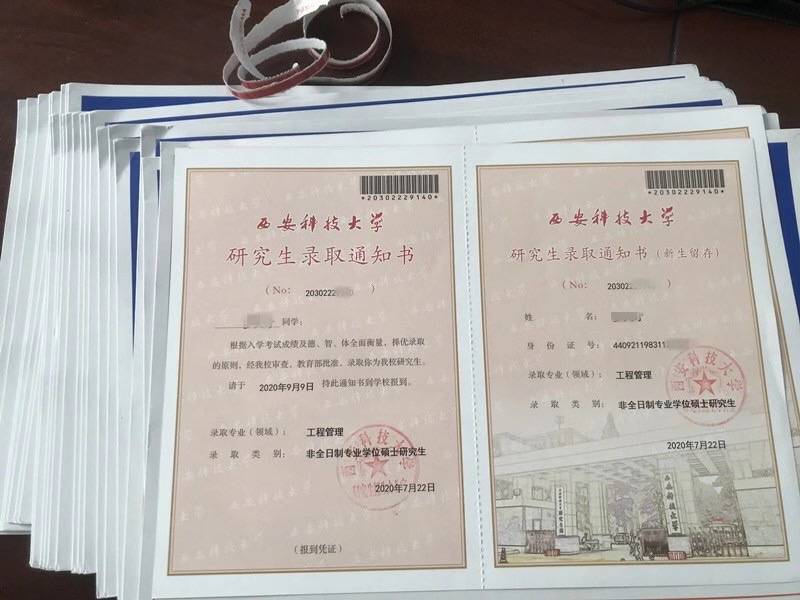 *20302229140*
西安科技大学
研究生录取通知书
(No: 203022 )
同学:
根据入学考试成绩及德、智、体全面衡量,择优录取
的原则,经我校审查,教育部批准,录取你为我校研究生。
请于 2020年9月9日 持此通知书到学校报到。
录取专业(领域): 工程管理
录 取 类 别: 非全日制专业学位硕士研究生
西安科技大学
2020年7月22日
(报到凭证)
*20302229140*
西安科技大学
研究生录取通知书(新生留存)
(No: 20302 )
姓 名:
身 份 证 号: 440921198311
录取专业(领域): 工程管理
录 取 类 别: 非全日制专业学位硕士研究生
西安科技大学
2020年7月22日
西安科技大学